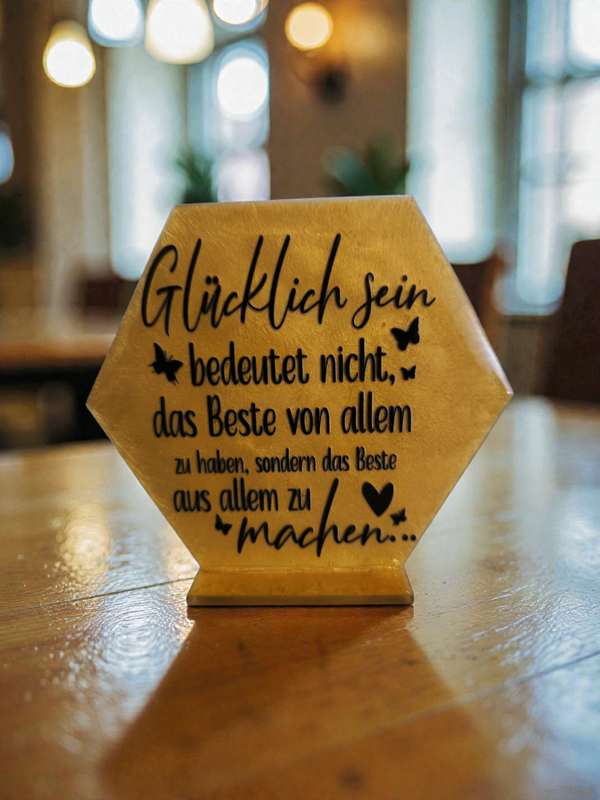 Glücklich sein
bedeutet nicht,
das Beste von allem
zu haben, sondern das Beste
aus allem zu
machen...